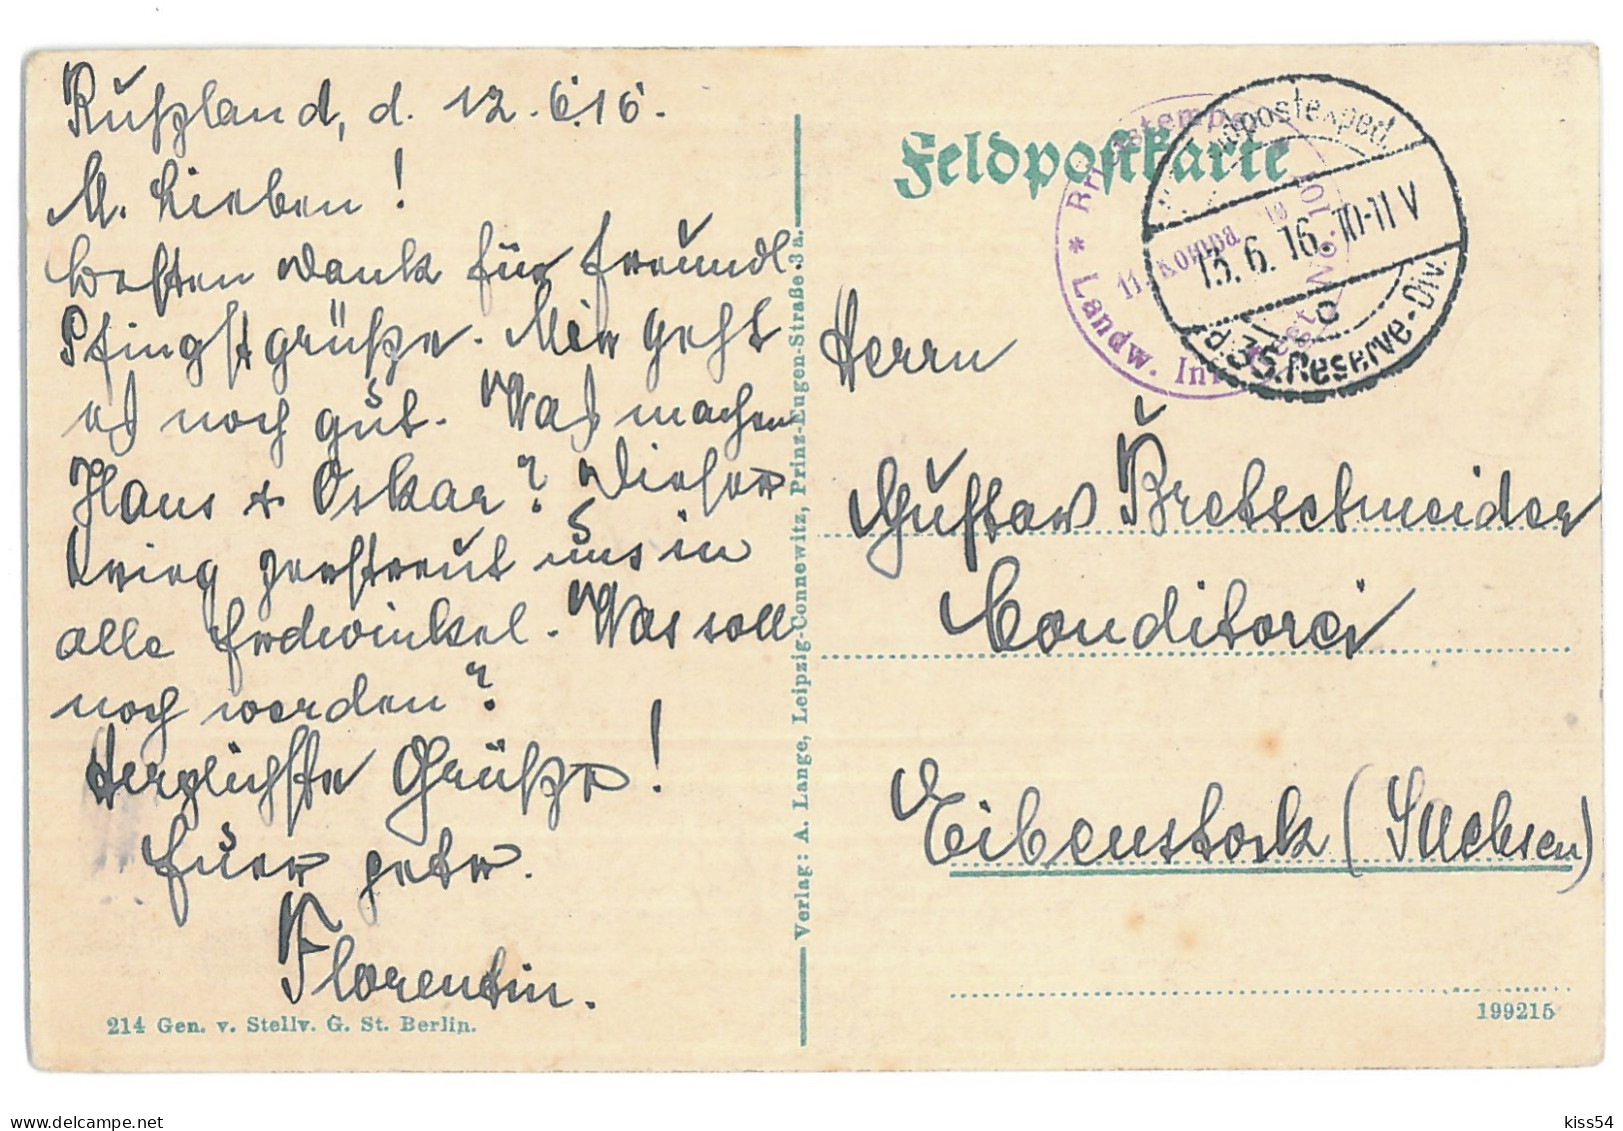 Rußland, d. 12.6.16.
M. Lieben!
Besten Dank für freundl.
Pfingstgrüße. Mir geht
es noch gut. Was machen
Hans + Oskar? Dieser
Krieg zerstreut uns in
alle Erdwinkel. Was soll
noch werden?
Herzlichste Grüße!
Euer getr.
Florentin.
214 Gen. v. Stellv. G. St. Berlin.
Verlag: A. Lange, Leipzig-Connewitz, Prinz-Eugen-Straße 3a.
Feldpostkarte
* Briefstempel *
11. Kompa
Landw. Inf. Regt. No. 101
Feldpostexped.
13.6.16. 10-11 V
d. 35. Reserve-Div.
Herrn
Gustav Bretschneider
Conditorei
Eibenstock (Sachsen)
199215
delcampe.net
kiss54